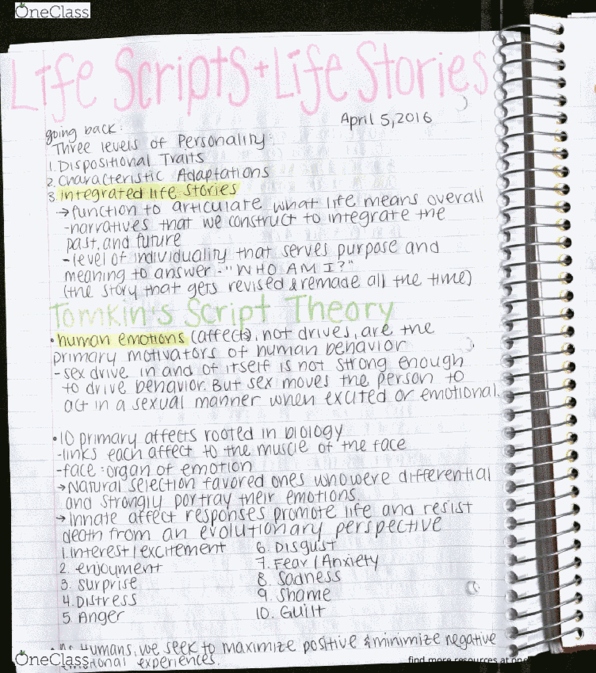 OneClass
Life Scripts + Life Stories
April 5, 2016
going back:
Three levels of Personality:
1. Dispositional Traits
2. Characteristic Adaptations
3. integrated life stories
→ function to articulate what life means overall
-narratives that we construct to integrate the
past, and future
-level of individuality that serves purpose and
meaning to answer - "WHO AM I?"
(the story that gets revised & remade all the time)
Tomkin's Script Theory
• human emotions (affects), not drives, are the
primary motivators of human behavior
-sex drive in and of itself is not strong enough
to drive behavior. But sex moves the person to
act in a sexual manner when excited or emotional.
• 10 primary affects rooted in biology
-links each affect to the muscle of the face
-face: organ of emotion
→ Natural selection favored ones who were differential
and strongly portray their emotions
→ Innate affect responses promote life and resist
death from an evolutionary perspective
1. interest/excitement 6. Disgust
2. enjoyment 7. Fear/Anxiety
3. surprise 8. Sadness
4. Distress 9. Shame
5. Anger 10. Guilt
humans, we seek to maximize positive & minimize negative
experiences.
OneClass
find more resources at